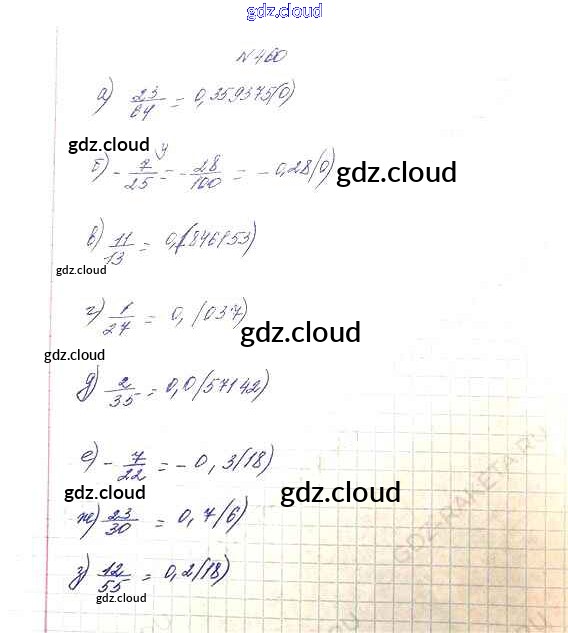 gdz.cloud
N460
а) 23/64 = 0,359375(0)
gdz.cloud
б) - 7/25 ⁴ = - 28/100 = - 0,28(0)
gdz.cloud
в) 11/13 = 0,(846153)
gdz.cloud
г) 1/27 = 0,(037)
gdz.cloud
gdz.cloud
д) 2/35 = 0,0(57142)
е) - 7/22 = - 0,3(18)
gdz.cloud
gdz.cloud
ж) 23/30 = 0,7(6)
з) 12/55 = 0,2(18)
gdz.cloud
GDZ-RAKETA.RU